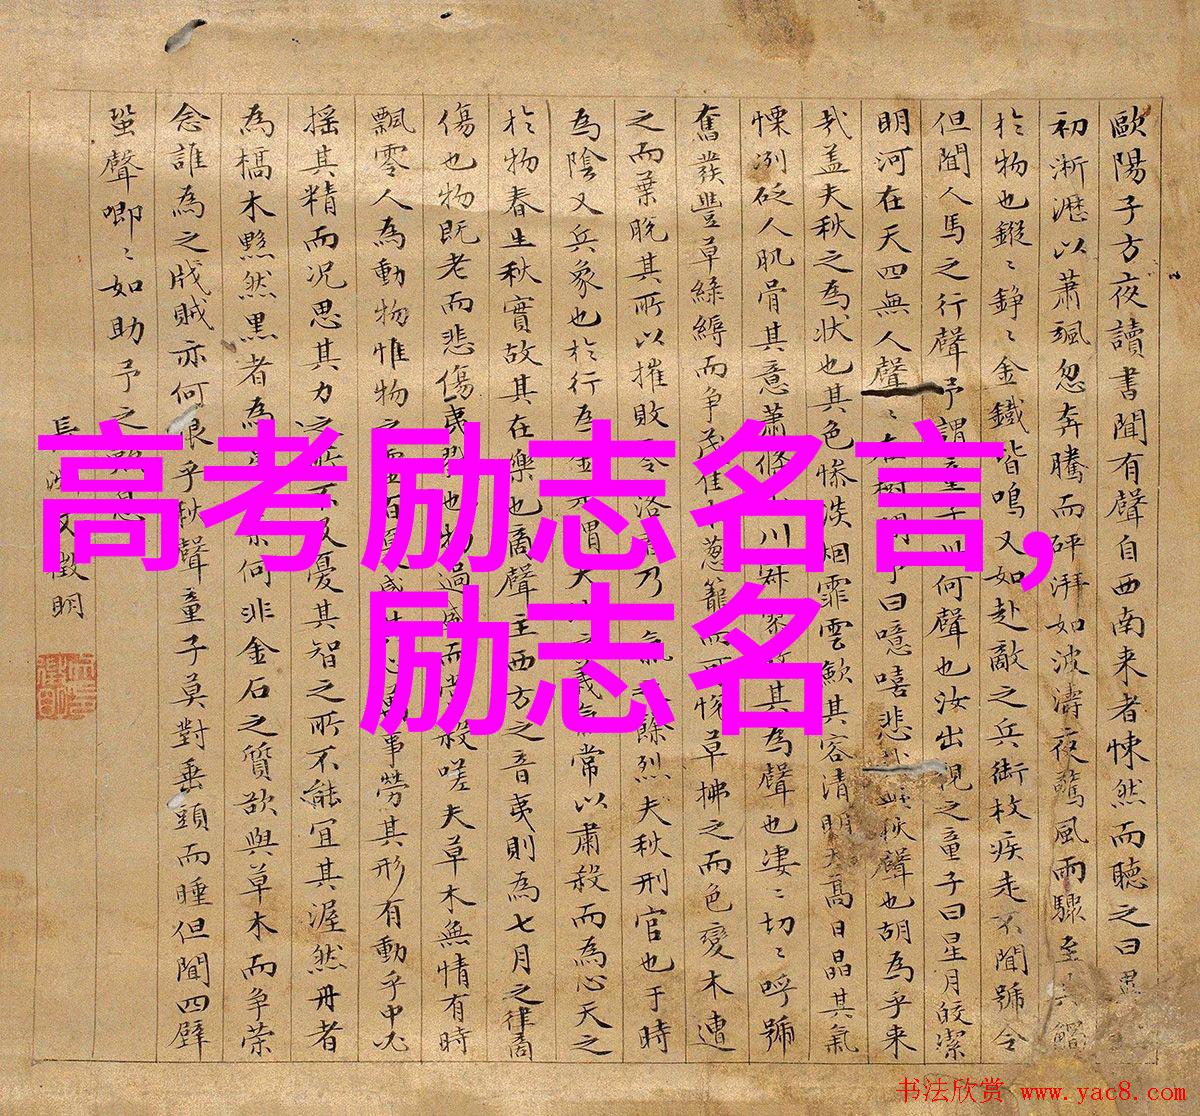 高考励志名言,
励志名
歐陽子方夜讀書聞有聲自西南来者悚然而聽之曰異
初淅瀝以蕭颯忽奔騰而砰湃如波濤夜驚風雨驟至其觸
於物也鏦〻錚〻金鐵皆鳴又如赴敵之兵銜枚疾走不聞號令
但聞人馬之行聲予謂童子此何聲也汝出視之童子曰星月皎潔
明河在天四無人聲〻在樹間予曰噫嘻悲哉此秋聲也胡為乎来
哉盖夫秋之為状也其色惨淡烟霏雲歛其容清明天髙日晶其氣
慄洌砭人肌骨其意蕭條山川寂寥其為聲也凄〻切〻呼號
奮發豐草綠縟而争茂佳木葱籠而可悦草拂之而色變木遭
之而葉脱其所以摧敗零落者乃氣之餘烈夫秋刑官也于時
為陰又兵象也於行為金是謂天地之義氣常以肅殺而為心天之
於物春生秋實故其在樂也商聲主西方之音夷則為七月之律商
傷也物既老而悲傷夷戮也物過盛而當殺嗟夫草木無情有時
飄零人為動物惟物之靈百憂感其心萬事勞其形有動乎中必
揺其精而况思其力之所不及憂其智之所不能冝其渥然丹者
為槁木黟然黒者為星奈何非金石之質欲與草木而争荣
念誰為之戕賊亦何恨乎秋聲童子莫對垂頭而睡但聞四壁
蛩聲唧〻如助予之歎息
長洲文徵明
书法欣赏 www.yac8.com